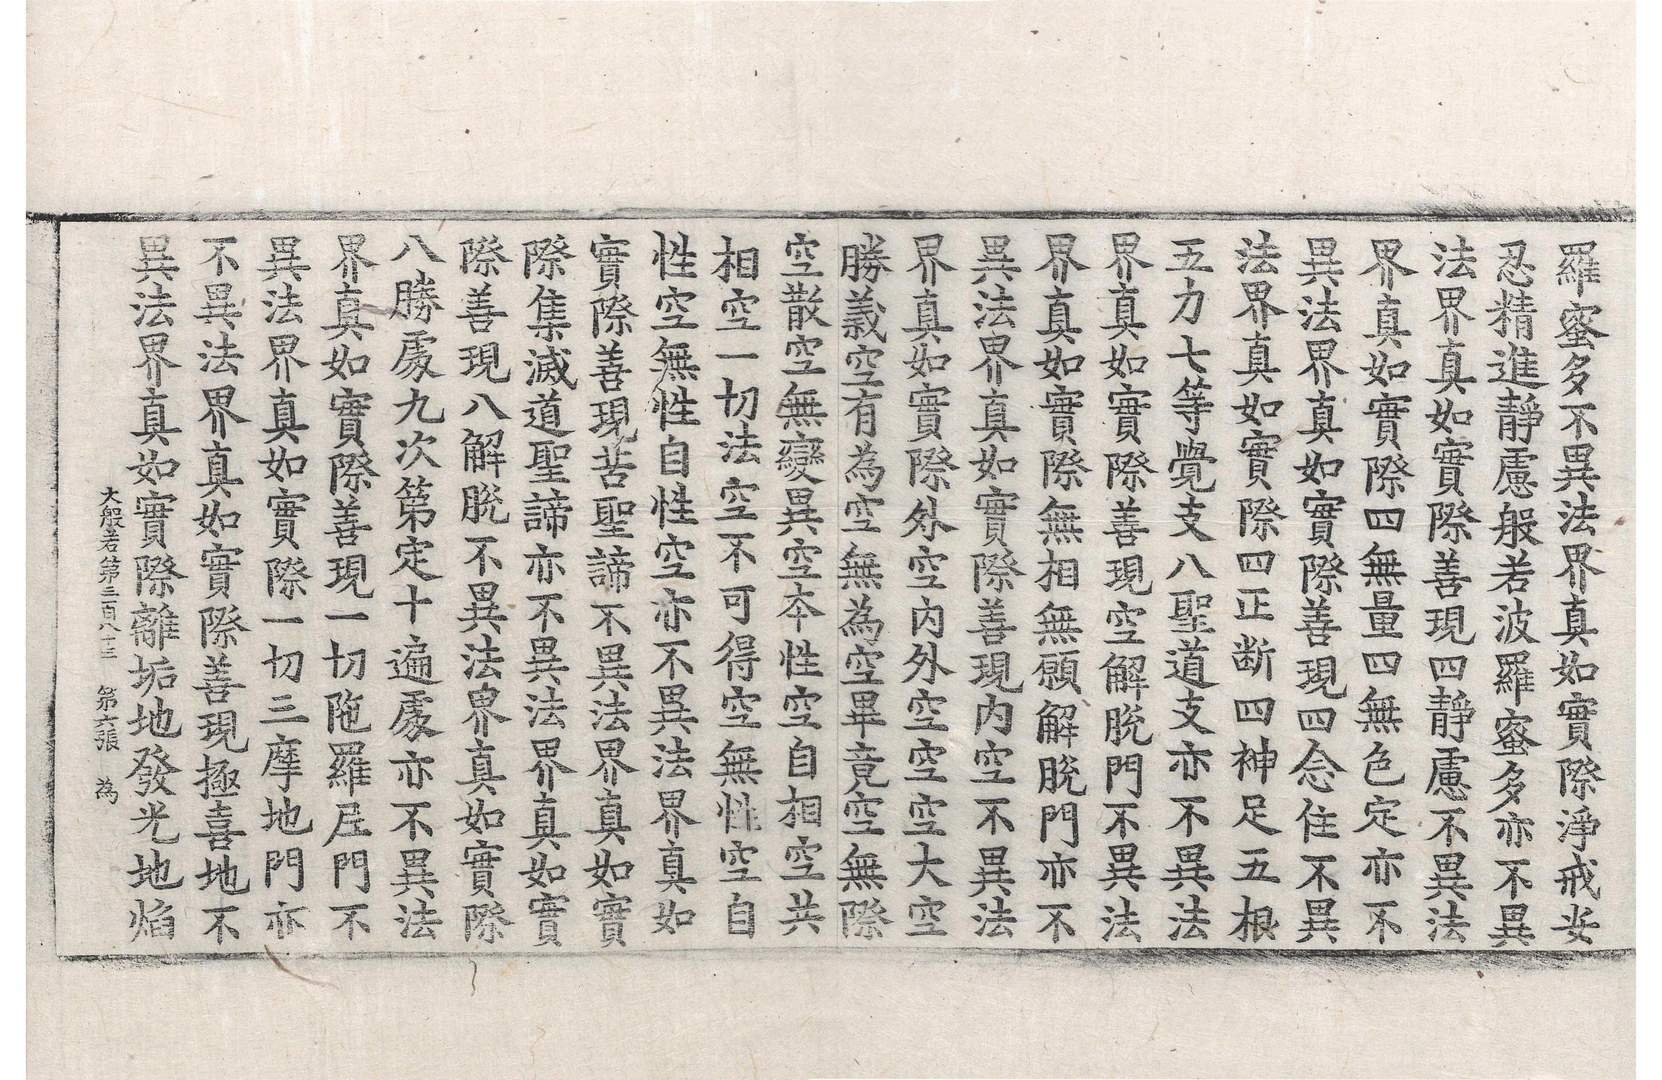 羅蜜多不異法界真如實際淨戒安
忍精進靜慮般若波羅蜜多亦不異
法界真如實際善現四靜慮不異法
界真如實際四無量四無色定亦不
異法界真如實際善現四念住不異
法界真如實際四正斷四神足五根
五力七等覺支八聖道支亦不異法
界真如實際善現空解脫門不異法
界真如實際無相無願解脫門亦不
異法界真如實際善現內空不異法
界真如實際外空內外空空空大空
勝義空有為空無為空畢竟空無際
空散空無變異空本性空自相空共
相空一切法空不可得空無性空自
性空無性自性空亦不異法界真如
實際善現苦聖諦不異法界真如實
際集滅道聖諦亦不異法界真如實
際善現八解脫不異法界真如實際
八勝處九次第定十遍處亦不異法
界真如實際善現一切陁羅尼門不
異法界真如實際一切三摩地門亦
不異法界真如實際善現極喜地不
異法界真如實際離垢地發光地焰
大般若第三百八十三 第六張 為